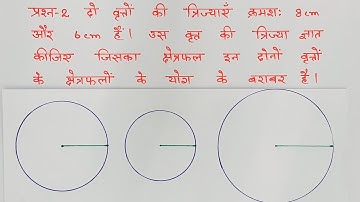 प्रश्न-2 दो वृत्तों की त्रिज्याएँ क्रमशः 8cm
और 6cm हैं। उस वृत्त की त्रिज्या ज्ञात
कीजिए जिसका क्षेत्रफल इन दोनों वृत्तों
के क्षेत्रफलों के योग के बराबर है।